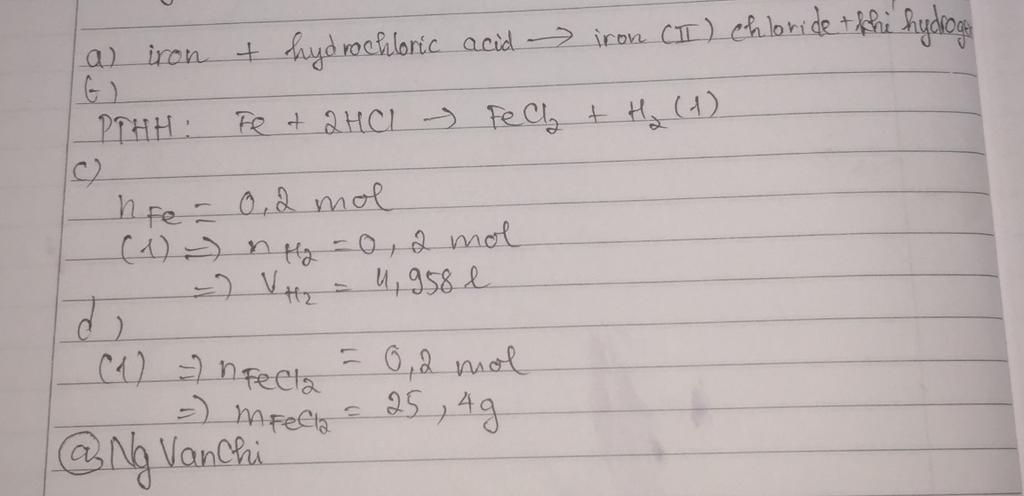 a) iron + hydrochloric acid → iron (II) chloride + khí hydrogen
b)
PTHH: Fe + 2HCl → FeCl₂ + H₂ (1)
c)
n Fe = 0,2 mol
(1) => n H₂ = 0,2 mol
=> V H₂ = 4,958 l
d)
(1) => n FeCl₂ = 0,2 mol
=> m FeCl₂ = 25,4g
@Ng VanChi